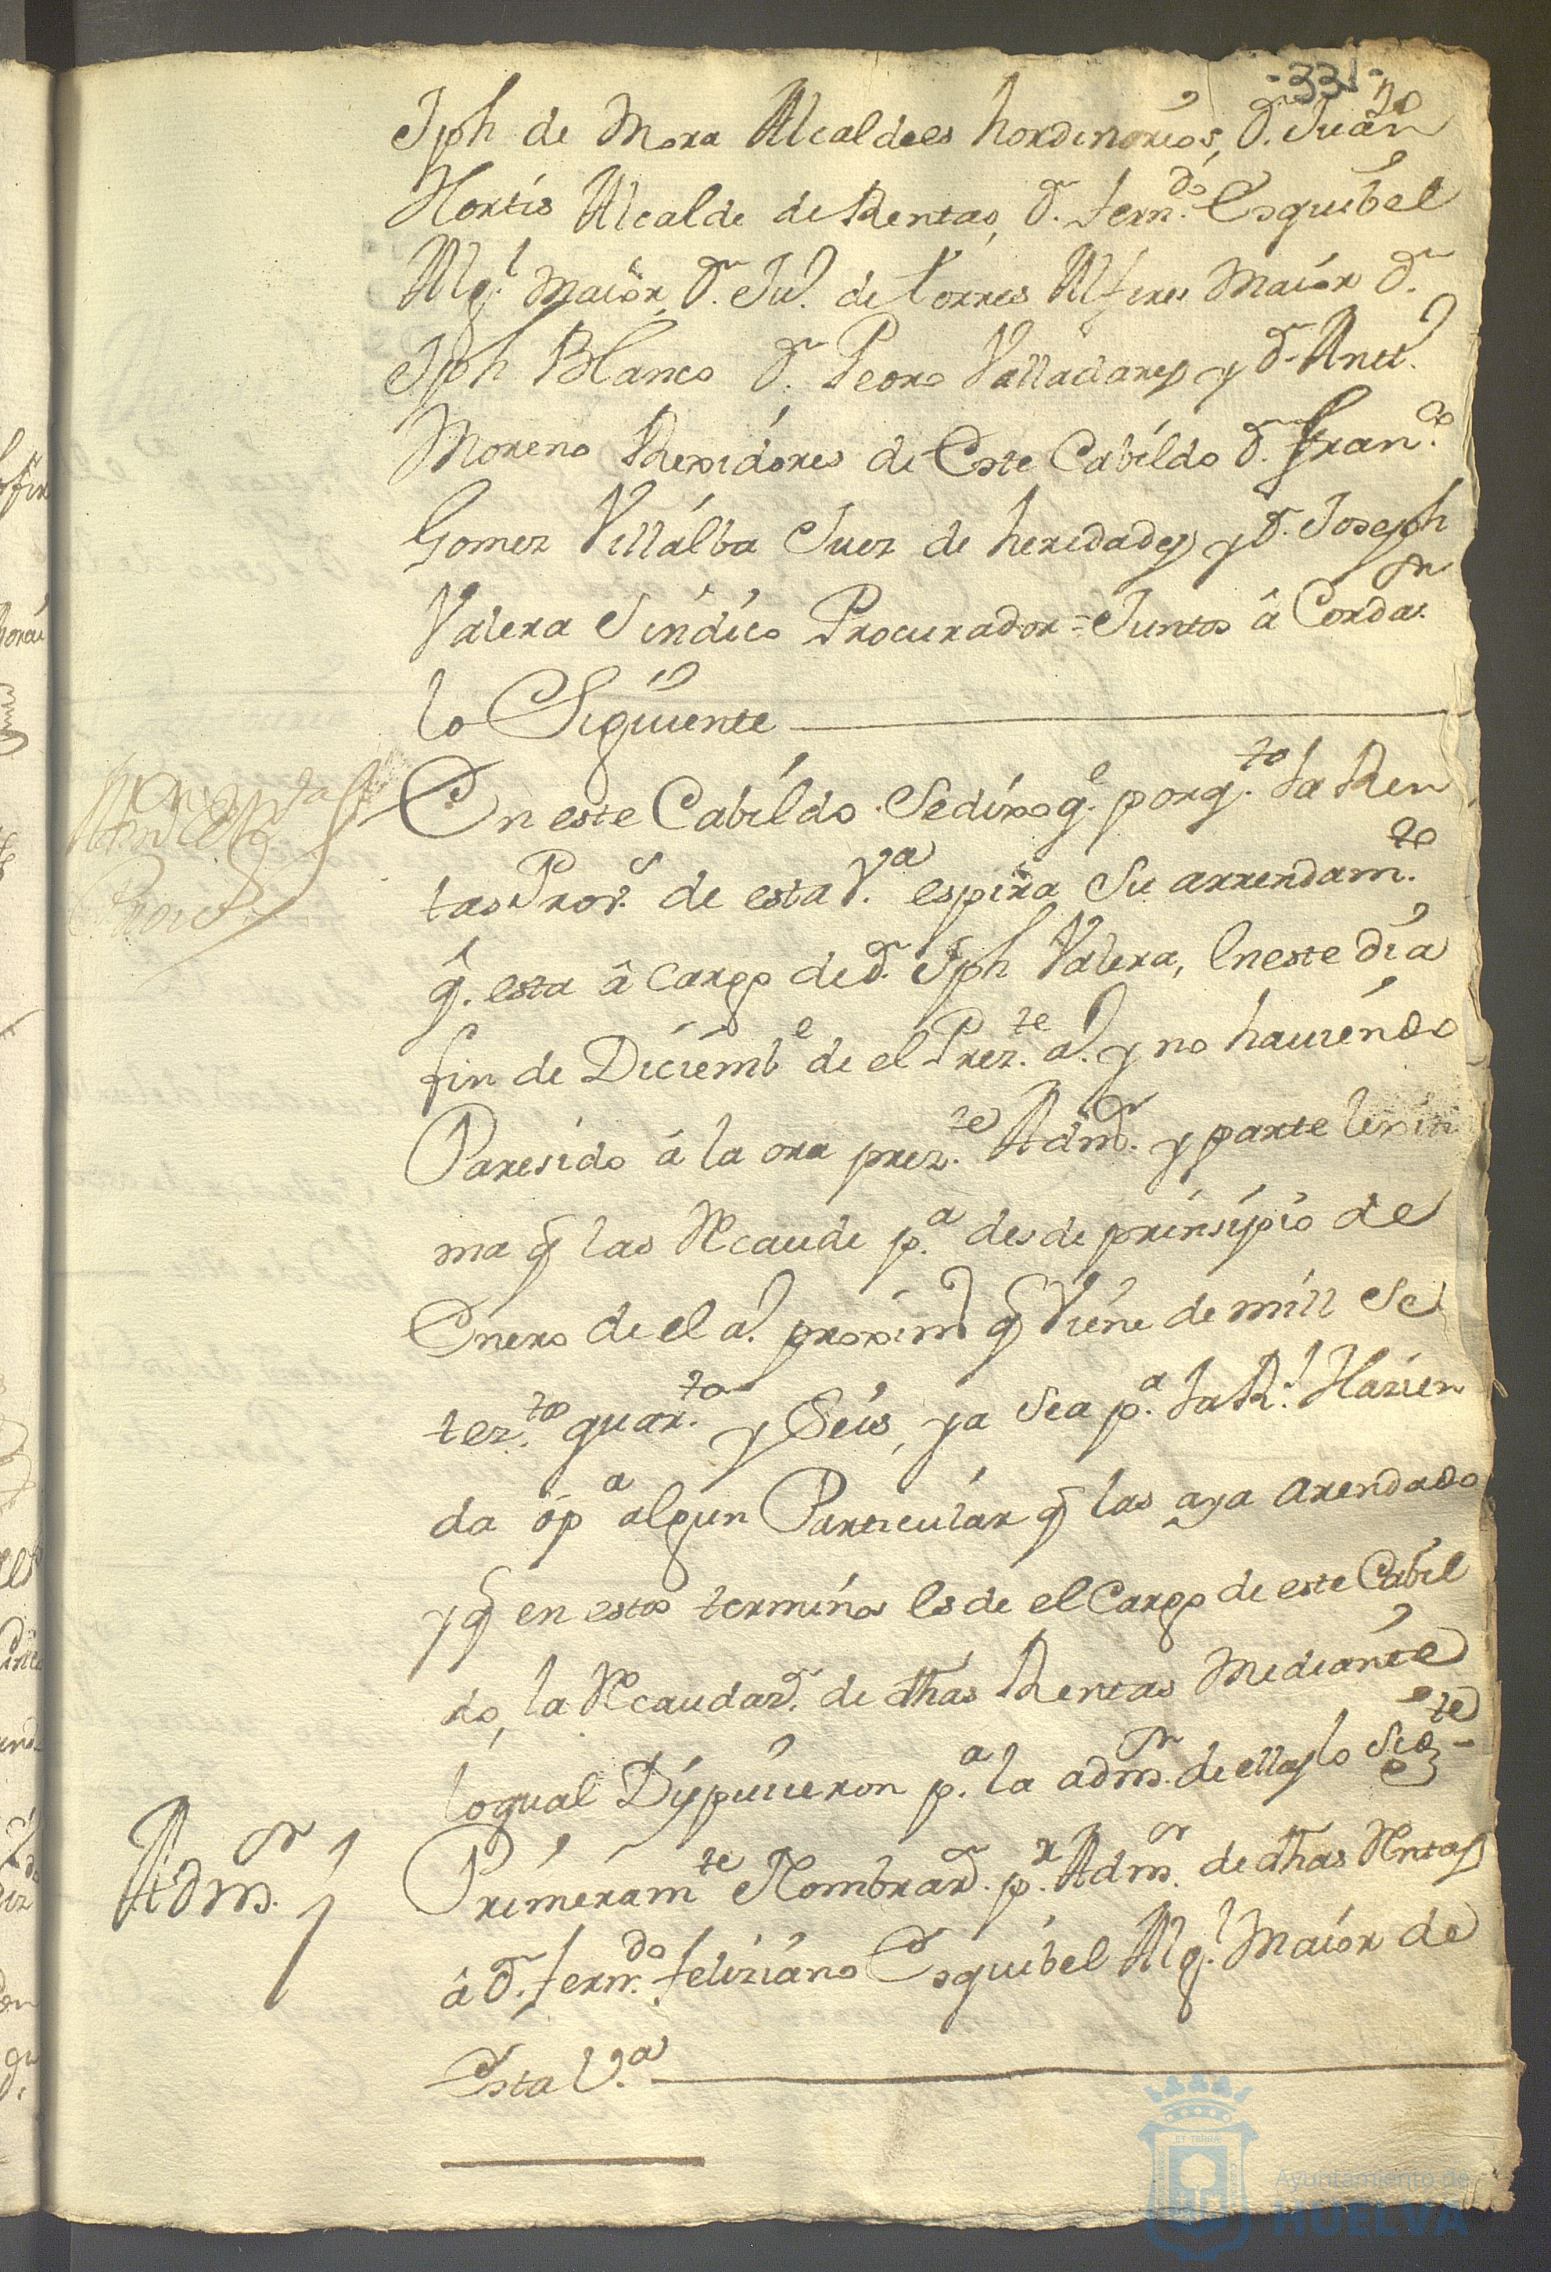 -331-
Jph de Mora Alcaldes hordinarios, Dn. Juan
Hortis Alcalde de Rentas, Dn. Fern.do Esquibel
Alg.l Maior, Dn. Ju.o de torres Alferes Maior Dn.
Jph Blanco Dn. Pedro Valladares y Dn. Antt.o
Moreno Rexidores de Este Cabildo Dn. Fran.co
Gomez Villalba Juez de heredades y Dn. Joseph
Valera Sindico Procurador = Juntos â Cordar.on
lo Siguiente
En este Cabildo Sedixo q.e porq.to la Ren
tas Prov.s de esta V.a espira Su arrendam.to
q. esta â cargo de Dn. Jph Valera, Eneste dia
fin de Diciemb.e de el Prez.te a.o y no haviendo
Paresido â la ora prez.te Adm.or y parte lexiti
ma q las Recaude p.a desde prinsipio de
Enero de el a.o proximo q Viene de mill Se
tez.tos quar.ta y Seis, ya Sea p.a la R.l Hazien
da o p.a algun Particular q las aya arendado
y q en estos terminos Es de el Cargo de este Cabil
do, la Recaudaz.on de dhas Rentas Mediante
loqual Dispusieron p.a la adm.on de ellas lo Sig.te
Adm.or
Primeram.te Nombrar.on p.r Adm.or de dhas Rentas
â Dn. Fern.do Feliziano Esquibel Alg.l Maior de
Esta V.a
Ayuntamiento de
HUELVA